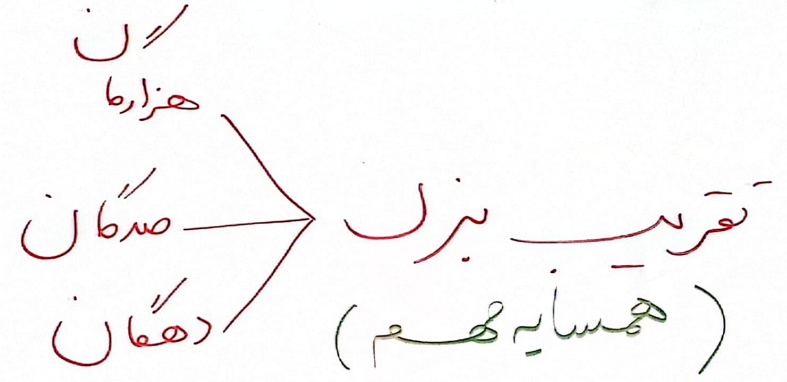 تقریب بزن
(همسایه مهم)
هزارگان
صدگان
دهگان